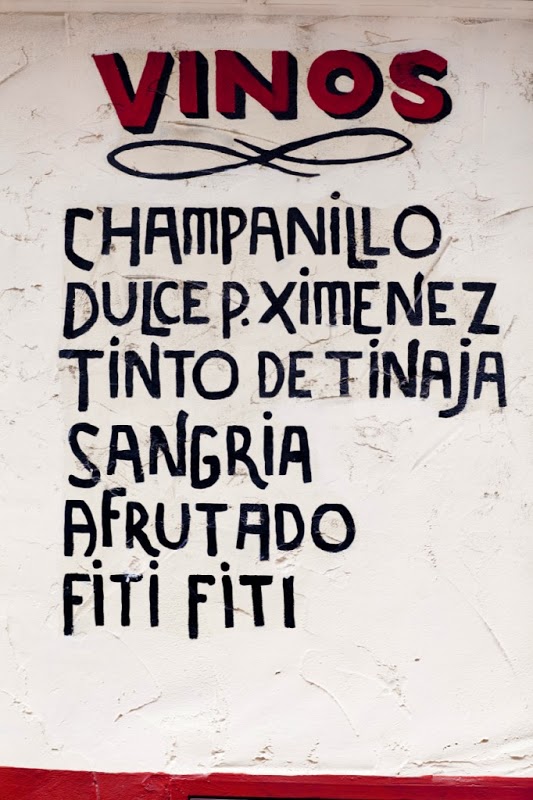 VINOS
CHAMPANILLO
DULCE P. XIMENEZ
TINTO DE TINAJA
SANGRIA
AFRUTADO
FITI FITI